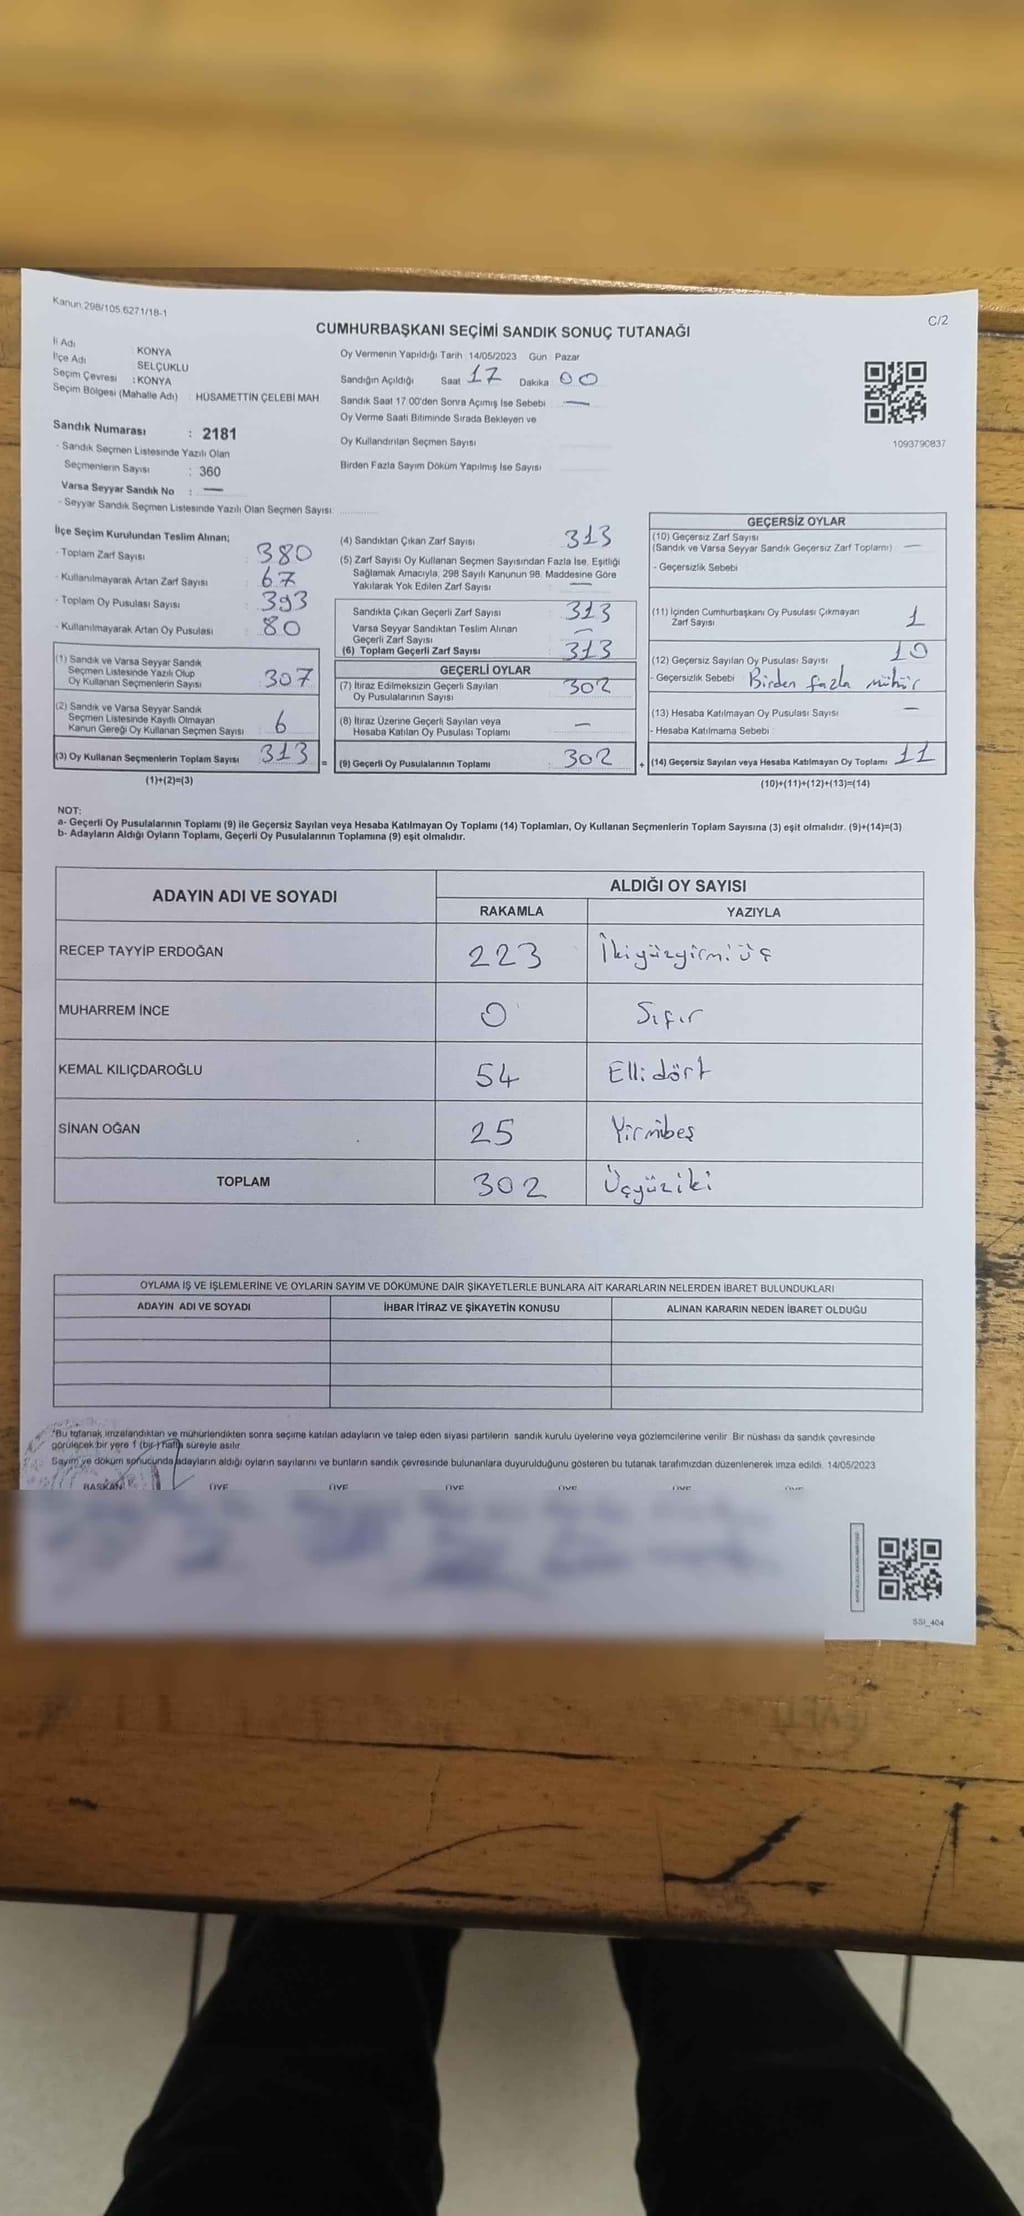 Kanun 298/105 6271/18-1
C/2
CUMHURBAŞKANI SEÇİMİ SANDIK SONUÇ TUTANAĞI
İl Adı : KONYA
İlçe Adı SELÇUKLU
Seçim Çevresi : KONYA
Seçim Bölgesi (Mahalle Adı) : HÜSAMETTİN ÇELEBİ MAH
Sandık Numarası : 2181
- Sandık Seçmen Listesinde Yazılı Olan
Seçmenlerin Sayısı : 360
Varsa Seyyar Sandık No : —
- Seyyar Sandık Seçmen Listesinde Yazılı Olan Seçmen Sayısı:
Oy Vermenin Yapıldığı Tarih 14/05/2023 Gün Pazar
Sandığın Açıldığı Saat 17 Dakika 00
Sandık Saat 17 00'den Sonra Açımış İse Sebebi —
Oy Verme Saati Bitiminde Sırada Bekleyen ve
Oy Kullandırılan Seçmen Sayısı
Birden Fazla Sayım Döküm Yapılmış İse Sayısı
1093790837
İlçe Seçim Kurulundan Teslim Alınan;
- Toplam Zarf Sayısı : 380
- Kullanılmayarak Artan Zarf Sayısı : 67
- Toplam Oy Pusulası Sayısı : 393
- Kullanılmayarak Artan Oy Pusulası : 80
(1) Sandık ve Varsa Seyyar Sandık
Seçmen Listesinde Yazılı Olup
Oy Kullanan Seçmenlerin Sayısı : 307
(2) Sandık ve Varsa Seyyar Sandık
Seçmen Listesinde Kayıtlı Olmayan
Kanun Gereği Oy Kullanan Seçmen Sayısı : 6
(3) Oy Kullanan Seçmenlerin Toplam Sayısı : 313
(1)+(2)=(3)
(4) Sandıktan Çıkan Zarf Sayısı : 313
(5) Zarf Sayısı Oy Kullanan Seçmen Sayısından Fazla İse, Eşitliği
Sağlamak Amacıyla, 298 Sayılı Kanunun 98. Maddesine Göre
Yakılarak Yok Edilen Zarf Sayısı : —
Sandıkta Çıkan Geçerli Zarf Sayısı : 313
Varsa Seyyar Sandıktan Teslim Alınan
Geçerli Zarf Sayısı : —
(6) Toplam Geçerli Zarf Sayısı : 313
GEÇERLİ OYLAR
(7) İtiraz Edilmeksizin Geçerli Sayılan
Oy Pusulalarının Sayısı : 302
(8) İtiraz Üzerine Geçerli Sayılan veya
Hesaba Katılan Oy Pusulası Toplamı : —
= (9) Geçerli Oy Pusulalarının Toplamı : 302
GEÇERSİZ OYLAR
(10) Geçersiz Zarf Sayısı
(Sandık ve Varsa Seyyar Sandık Geçersiz Zarf Toplamı) : —
- Geçersizlik Sebebi
(11) İçinden Cumhurbaşkanı Oy Pusulası Çıkmayan
Zarf Sayısı : 1
(12) Geçersiz Sayılan Oy Pusulası Sayısı : 10
- Geçersizlik Sebebi Birden fazla mühür
(13) Hesaba Katılmayan Oy Pusulası Sayısı : —
- Hesaba Katılmama Sebebi :
+ (14) Geçersiz Sayılan veya Hesaba Katılmayan Oy Toplamı : 11
(10)+(11)+(12)+(13)=(14)
NOT:
a- Geçerli Oy Pusulalarının Toplamı (9) ile Geçersiz Sayılan veya Hesaba Katılmayan Oy Toplamı (14) Toplamları, Oy Kullanan Seçmenlerin Toplam Sayısına (3) eşit olmalıdır. (9)+(14)=(3)
b- Adayların Aldığı Oyların Toplamı, Geçerli Oy Pusulalarının Toplamına (9) eşit olmalıdır.
ADAYIN ADI VE SOYADI ALDIĞI OY SAYISI
RAKAMLA YAZIYLA
RECEP TAYYİP ERDOĞAN 223 İkiyüzyirmiüç
MUHARREM İNCE 0 Sıfır
KEMAL KILIÇDAROĞLU 54 Ellidört
SİNAN OĞAN 25 Yirmibeş
TOPLAM 302 Üçyüziki
OYLAMA İŞ VE İŞLEMLERİNE VE OYLARIN SAYIM VE DÖKÜMÜNE DAİR ŞİKAYETLERLE BUNLARA AİT KARARLARIN NELERDEN İBARET BULUNDUKLARI
ADAYIN ADI VE SOYADI İHBAR İTİRAZ VE ŞİKAYETİN KONUSU ALINAN KARARIN NEDEN İBARET OLDUĞU
*Bu tutanak imzalandıktan ve mühürlendikten sonra seçime katılan adayların ve talep eden siyasi partilerin sandık kurulu üyelerine veya gözlemcilerine verilir. Bir nüshası da sandık çevresinde
görülecek bir yere 1 (bir) hafta süreyle asılır.
Sayım ve döküm sonucunda adayların aldığı oyların sayılarını ve bunların sandık çevresinde bulunanlara duyurulduğunu gösteren bu tutanak tarafımızdan düzenlenerek imza edildi. 14/05/2023
BAŞKAN ÜYE ÜYE ÜYE ÜYE ÜYE ÜYE
SSI_404